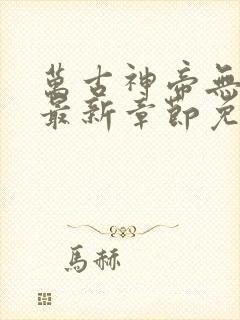 萬古神帝無
最新章節免
馬赫